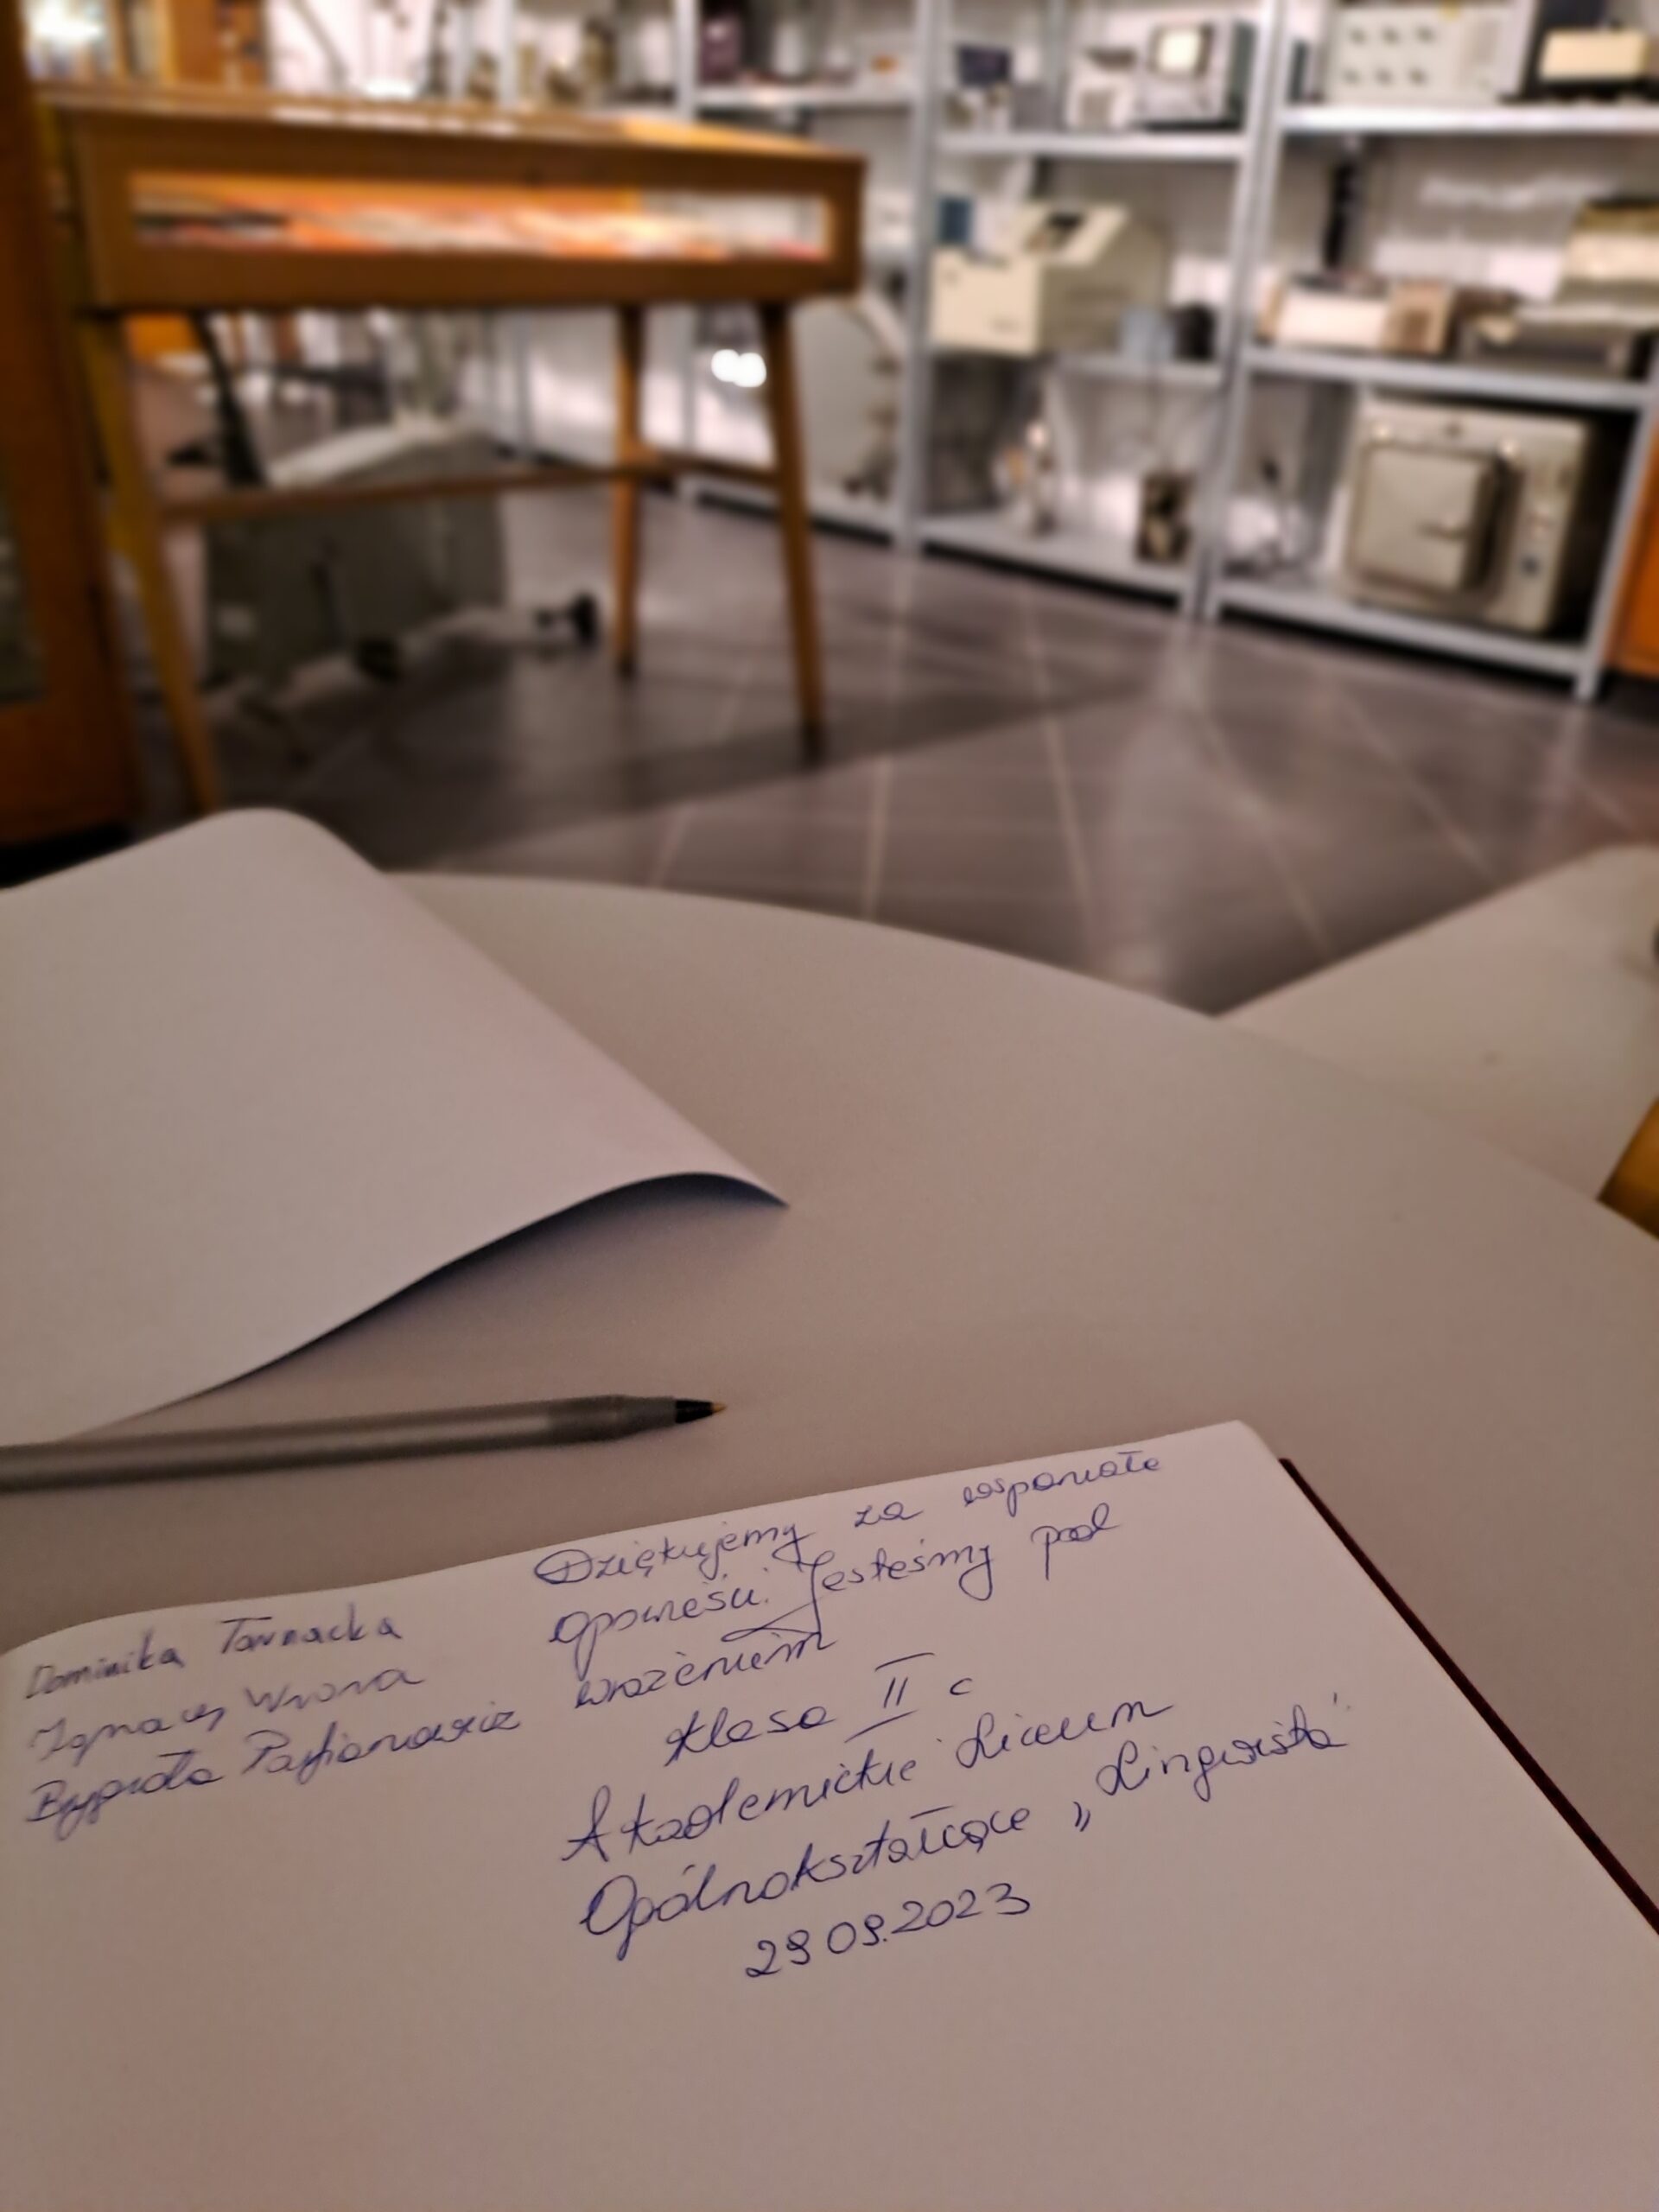 Dziękujemy za wspaniałe
opowieści. Jesteśmy pod
wrażeniem
Klasa II c
Akademickie Liceum
Ogólnokształcące „Lingwista"
29 09.2023
Dominika Tarnacka
Ignacy Wrona
Brygida